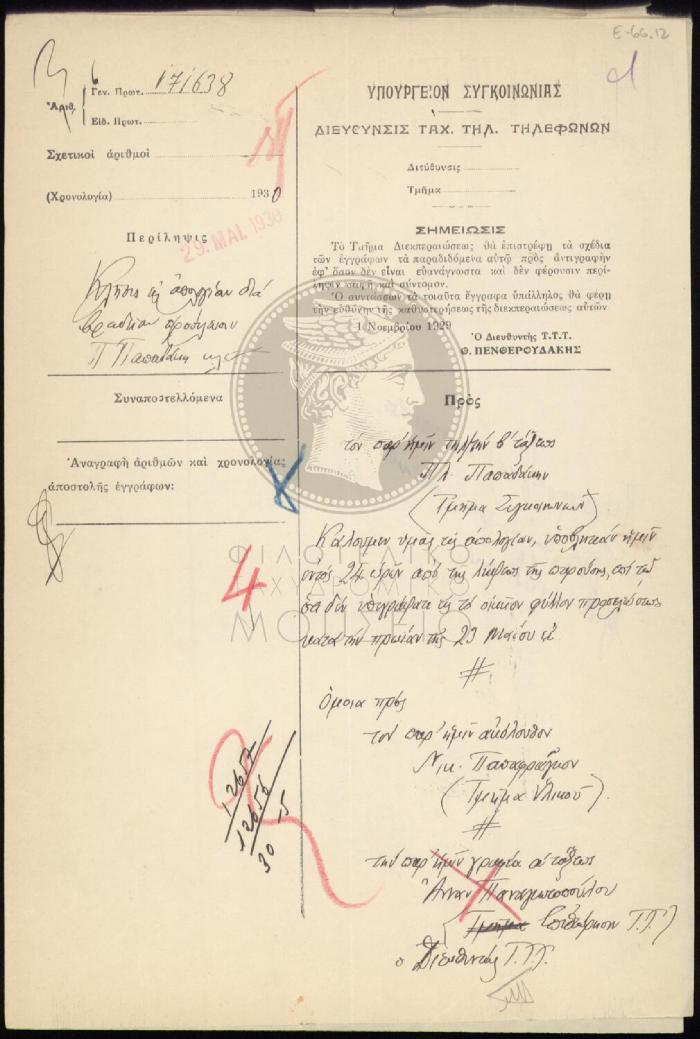 E-66.12
Γεν. Πρωτ. 171638
Ἀριθ.
Εἰδ. Πρωτ.
Σχετικοὶ ἀριθμοὶ
(Χρονολογία) 1930
29. ΜΑΙ. 1930
Περίληψις
Κλῆσις εἰς ἀπολογίαν διὰ
βραδεῖαν προσέλευσιν
Π Παπαδάκη κλπ
Συναποστελλόμενα
Ἀναγραφὴ ἀριθμῶν καὶ χρονολογίας
ἀποστολῆς ἐγγράφων:
4
12657
12656
30 5
ΥΠΟΥΡΓΕΙΟΝ ΣΥΓΚΟΙΝΩΝΙΑΣ
ΔΙΕΥΘΥΝΣΙΣ ΤΑΧ. ΤΗΛ. ΤΗΛΕΦΩΝΩΝ
Διεύθυνσις
Τμῆμα
ΣΗΜΕΙΩΣΙΣ
Τὸ Τμῆμα Διεκπεραιώσεως θὰ ἐπιστρέφῃ τὰ σχέδια
τῶν ἐγγράφων τὰ παραδιδόμενα αὐτῷ πρὸς ἀντιγραφὴν
ἐφ' ὅσον δὲν εἶναι εὐανάγνωστα καὶ δὲν φέρουσιν περί-
ληψιν σαφῆ καὶ σύντομον.
Ὁ συντάσσων τὰ τοιαῦτα ἔγγραφα ὑπάλληλος θὰ φέρῃ
τὴν εὐθύνην τῆς καθυστερήσεως τῆς διεκπεραιώσεως αὐτῶν
1 Νοεμβρίου 1929
Ὁ Διευθυντὴς Τ.Τ.Τ.
Θ. ΠΕΝΘΕΡΟΥΔΑΚΗΣ
Πρὸς
τὸν παρ' ἡμῖν τηλ/τὴν β' τάξεως
Πλ. Παπαδάκην
(Τμῆμα Συγκοινωνιῶν)
Καλοῦμεν ὑμᾶς εἰς ἀπολογίαν, ὑποβλητέαν ἡμῖν
ἐντὸς 24 ὡρῶν ἀπὸ τῆς λήψεως τῆς παρούσης, ἐπὶ τῷ
ὅτι δὲν ὑπεγράψατε εἰς τὸ οἰκεῖον φύλλον προσελεύσεως
κατὰ τὴν πρωίαν τῆς 23 Μαΐου ἐ.ἔ.
#
Ὅμοια πρὸς
τὸν παρ' ἡμῖν ἀκόλουθον
Νικ. Παπαφράγκον
(Τμῆμα Ὑλικοῦ).
#
τὴν παρ' ἡμῖν γραφέα α' τάξεως
Ἄνναν Παναγιωτοπούλου
(Τμῆμα Ἐπιθεώρησιν Τ.Τ.)
ὁ Διευθυντὴς Τ.Τ.Τ.
ΦΙΛΟΤΕΛΙΚΟ
ΤΑΧΥΔΡΟΜΙΚΟ
ΜΟΥΣΕΙΟ